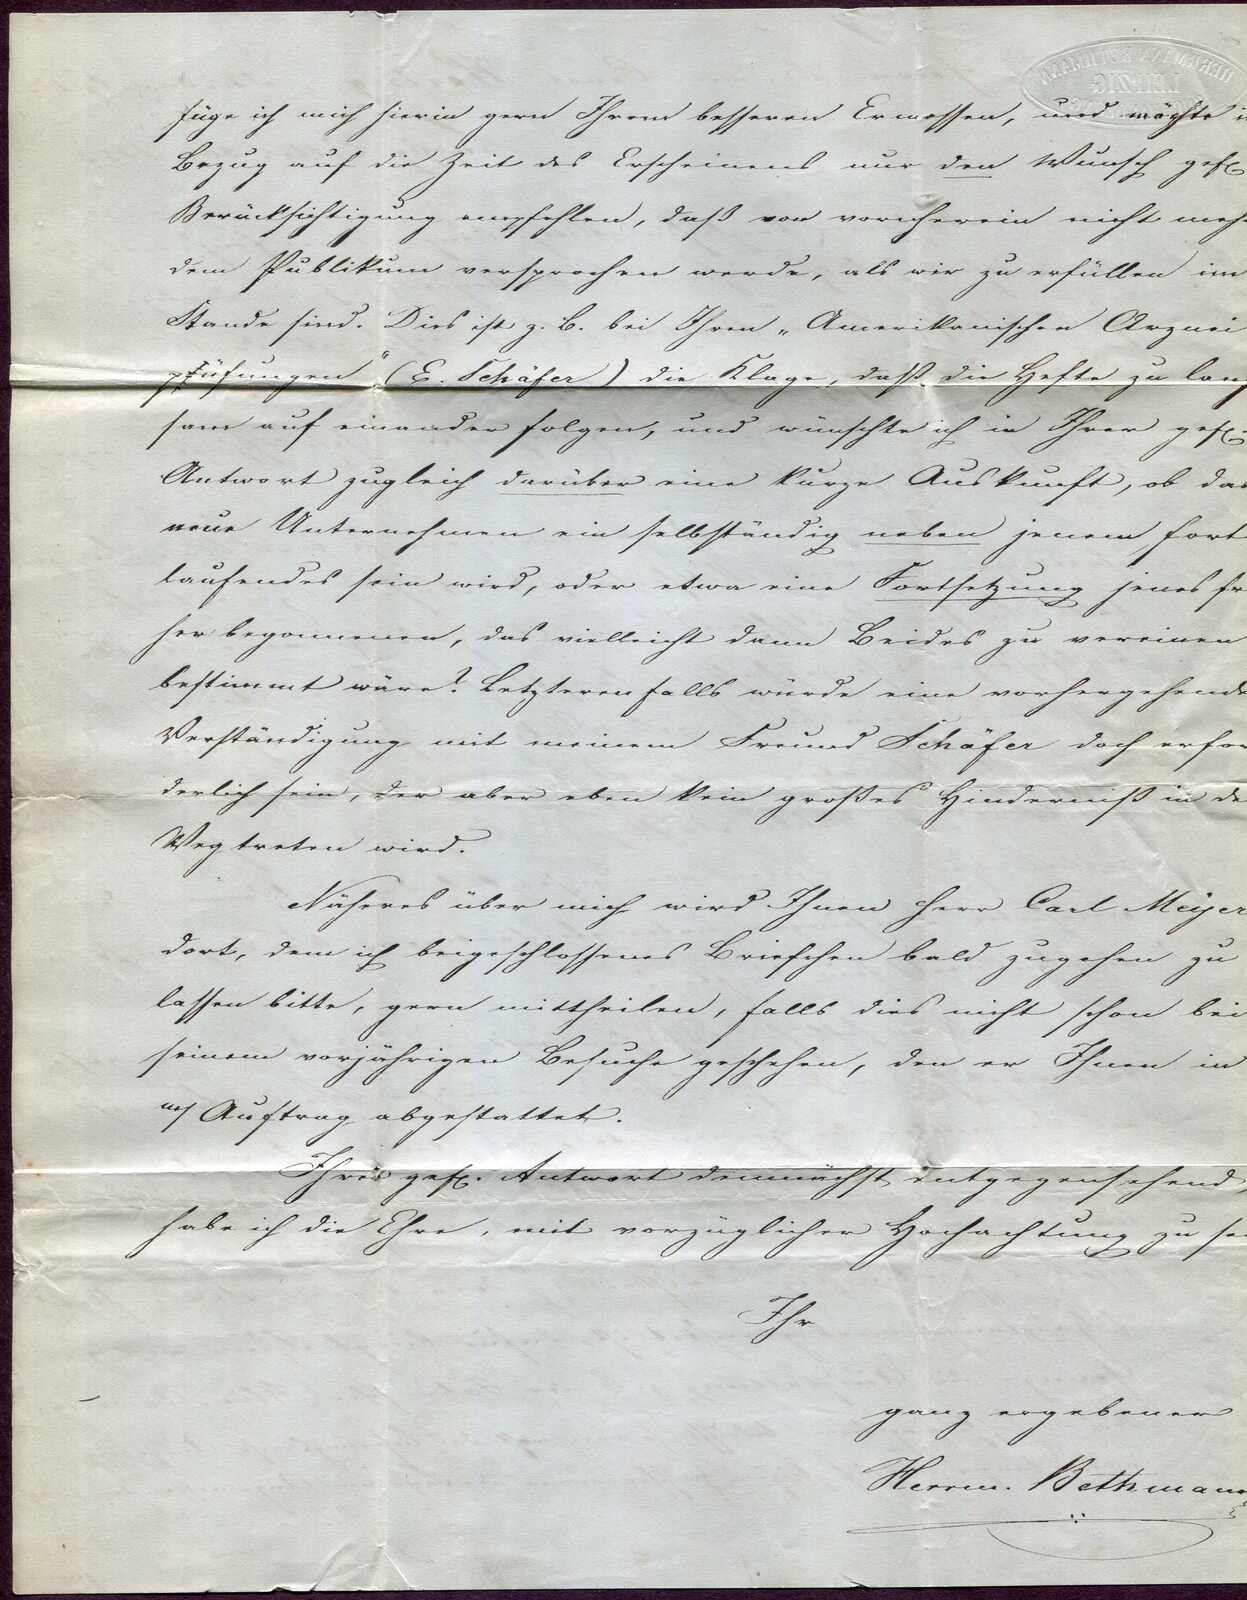 HERRMANN BETHMANN
LEIPZIG
füge ich mich hierin gern Ihrem besseren Ermessen, und möchte i
Bezug auf die Zeit des Erscheinens nur den Wunsch gefl.
Berücksichtigung empfehlen, daß von vornherein nicht meh
dem Publikum versprochen werde, als wir zu erfüllen im
Stande sind. Dies ist z. B. bei Ihren „Amerikanischen Arznei
prüfungen" (E. Schäfer) die Klage, daß die Hefte zu lang
sam auf einander folgen, und wünschte ich in Ihrer gefl.
Antwort zugleich darüber eine kurze Auskunft, ob das
neue Unternehmen ein selbständig neben jenem fort
laufendes sein wird, oder etwa eine Fortsetzung jenes fr
her begonnenen, das vielleicht dann Beides zu vereinen
bestimmt wäre? Letzteren falls würde eine vorhergehende
Verständigung mit meinem Freund Schäfer doch erfor
derlich sein, der aber eben kein großes Hinderniß in de
Weg treten wird.
Näheres über mich wird Ihnen Herr Carl Meyer
dort, dem ich beigeschlossenes Briefchen bald zugehen zu
lassen bitte, gern mittheilen, falls dies nicht schon bei
seinem vorjährigen Besuche geschehen, den er Ihnen in
m/ Auftrag abgestattet.
Ihrer gefl. Antwort demnächst entgegensehend,
habe ich die Ehre, mit vorzüglicher Hochachtung zu se
Ihr
ganz ergebener
Herrm. Bethmann